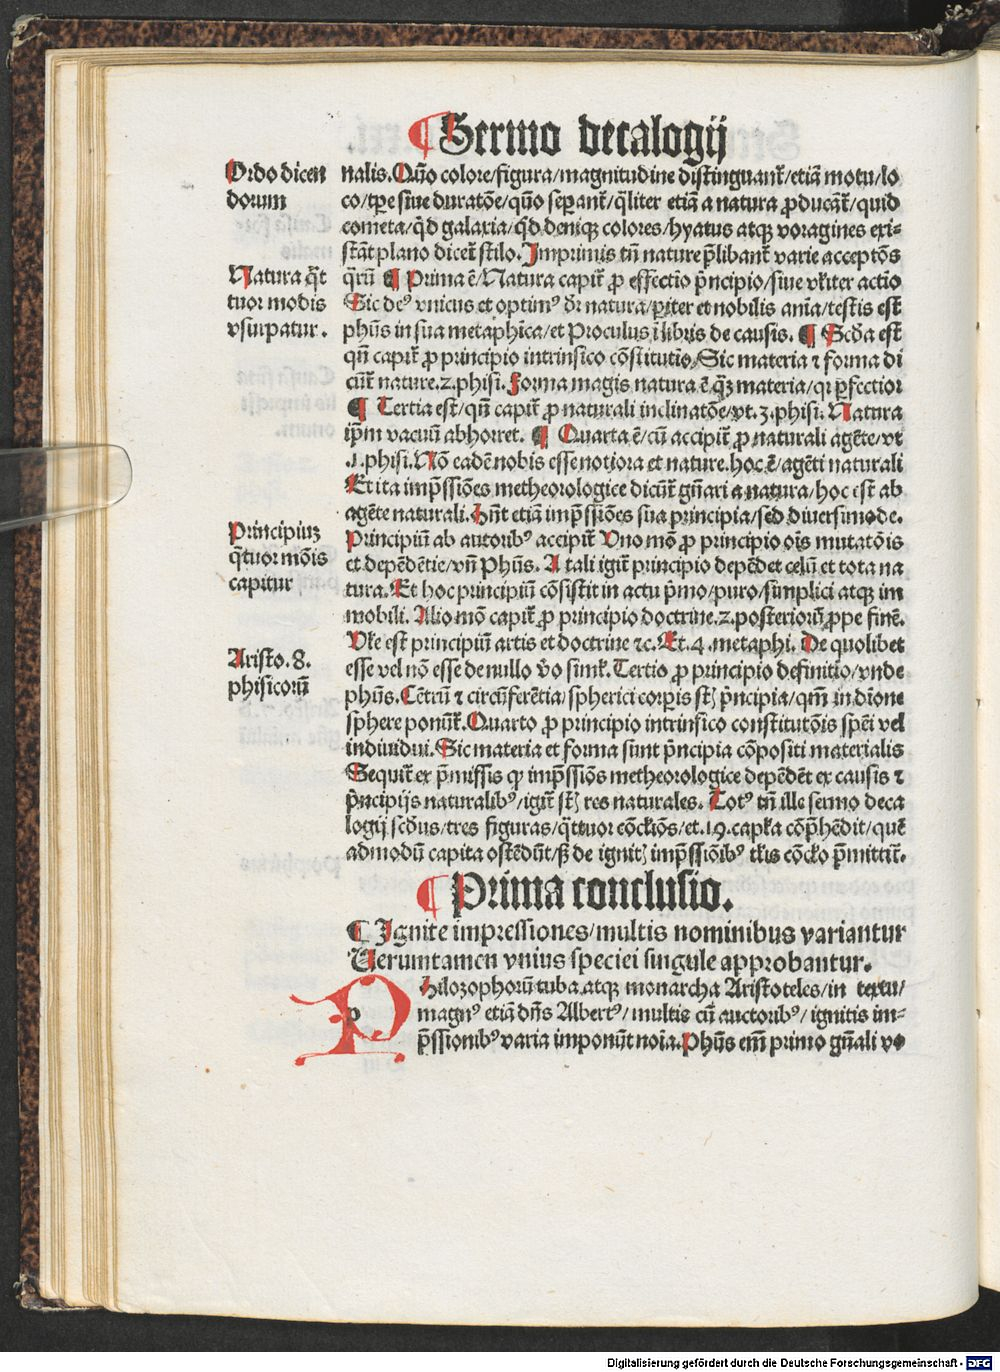 ¶ Sermo decalogij
Ordo dicen
dorum
nalis. Quō colore/figura/magnitudine distinguant᷑/etiā motu/lo
co/tp̄e siue duratōe/quō sep̄ant᷑/q̄liter etiā a natura ꝓducāt᷑/quid
cometa/qͥd galaxia/qͥd deniqꝫ colores/hyatus atqꝫ voragines exi-
stāt plano dicet᷑ stilo. Imprimis tn̄ nature p̄libant᷑ varie acceptōs
Natura q̄t
tuor modis
vsurpatur.
q̄rū ¶ Prima ē/Natura capit᷑ ꝓ effectiō pͥncipio/siue vl̓iter actiō
Sic deꝰ vnicus et optimꝰ dr̄ natura/pariter et nobilis anīa/testis est
ph̄us in sua metaphīca/et Proculus ī libris de causis. ¶ Scd̓a est
qn̄ capit᷑ ꝓ principio intrinsico cōstitutiō/Sic materia ⁊ forma di
cūt᷑ nature.2.phisi. Forma magis natura ē qꝫ materia/qꝛ ꝑfectior
¶ Tertia est/qn̄ capit᷑ ꝓ naturali inclinatōe/vt.3.phisi. Natura
ip̄m vacuū abhorret. ¶ Quarta ē/cū accipit᷑ ꝓ naturali agēte/vt
.1.phisi. Nō eadē nobis esse notiora et nature.hoc ē/agēti naturali
Et ita imp̄ssiōes metheorologice dicūt᷑ gn̄ari a natura/hoc est ab
agēte naturali. Hn̄t etiā imp̄ssiōes sua principia/sed diuersimode.
Principiuꝫ
q̄tuor mōis
capitur
Principiū ab autoribꝰ accipit᷑ Vno mō ꝓ principio oīs mutatōis
et depēdētie/vn̄ Ph̄us. A tali igit᷑ principio depēdet celū et tota na
tura. Et hoc principiū cōsistit in actu pͥmo/puro/simplici atqꝫ im
mobili. Alio mō capit᷑ ꝓ principio doctrine.2.posteriorū ꝓpe finē.
Vl̓e est principiū artis et doctrine ⁊c. Et.4.metaphi. De quolibet
Aristo.8.
phisicorū
esse vel nō esse de nullo v̓o siml̓. Tertio ꝓ principio definitiō/vnde
ph̄us. Cētrū ⁊ circūferētia/spherici corꝑis st̄ pͥncipia/qm̄ in diōne
sphere ponūt᷑. Quarto ꝓ principio intrinsico constitutōis spēi vel
indiuidui. Sic materia et forma sunt pͥncipia cōpositi materialis
Sequit᷑ ex p̄missis ꝙ imp̄ssiōs metheorologice depēdēt ex causis ⁊
pͥncipijs naturalibꝰ/igit᷑ st̄ res naturales. Totꝰ tn̄ ille sermo deca
logij scd̓us/tres figuras/q̄ttuor cōcl̓iōs/et.19.capl̓a cōp̄hēdit/quē
admodū capita ostēdūt/sꝫ de ignitꝭ imp̄ssiōibꝰ tl̓is cōcl̓o p̄mittit᷑.
¶ Prima conclusio.
¶ Ignite impressiones/multis nominibus variantur
Ueruntamen vnius speciei singule approbantur.
Philozophorū tuba.atqꝫ monarcha Aristoteles/in textu/
magnꝰ etiā dn̄s Albertꝰ/multis cū auctoribꝰ/ignitis im-
p̄ssionibꝰ varia imponūt noīa. Ph̄us em̄ primo gn̄ali vo
Digitalisierung gefördert durch die Deutsche Forschungsgemeinschaft - DFG